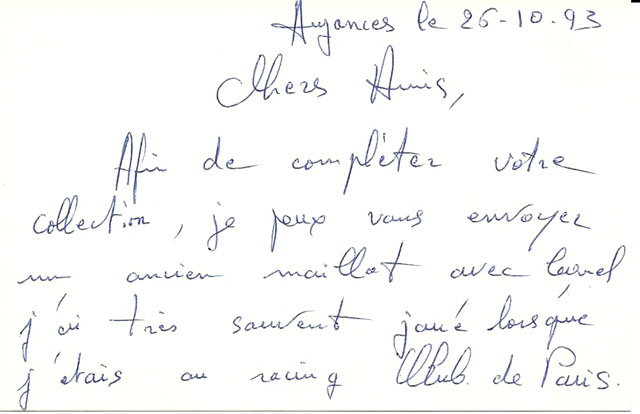 Auyances le 26-10-93
Chers Amis,
Afin de compléter votre
collection, je peux vous envoyer
un ancien maillot avec lequel
j'ai très souvent joué lorsque
j'étais au racing Club. de Paris.